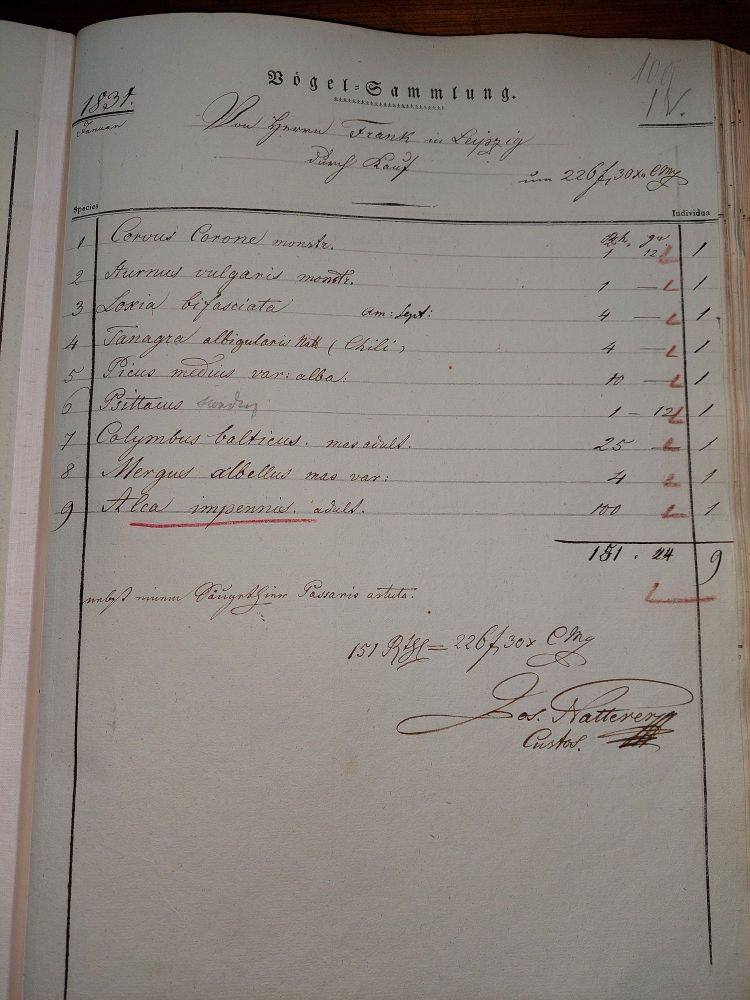 109
IV.
Vögel-Sammlung.
1831.
Januar
Von Herrn Frank in Leipzig
durch Kauf
um 226 f, 30 x. CMz
Species Individua
Rth. gr.
1 Corvus Corone monstr. 1 12 1
2 Sturnus vulgaris monstr. 1 — 1
3 Loxia bifasciata Am: Sept: 4 — 1
4 Tanagra albigularis Natt (Chili) 4 — 1
5 Picus medius var: alba: 10 — 1
6 Psittacus 1 — 12 1
7 Colymbus balticus. mas adult. 25 — 1
8 Mergus albellus mas var: 4 — 1
9 Alca impennis. adult. 100 — 1
151 . 24 9
nebst einem Säugethier astuta.
151 Rthl = 226 f, 30 x CMz
Jos. Natterer
Custos.